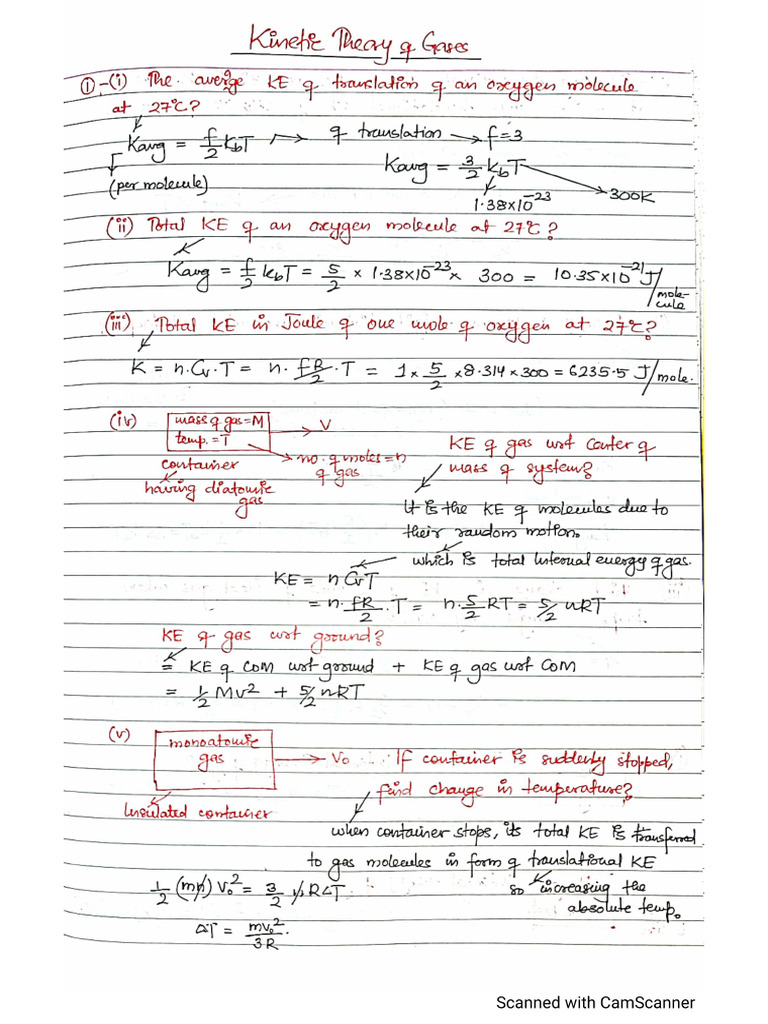 Kinetic Theory of Gases
①-(i) The average KE of translation of an oxygen molecule
at 27°C?
Kavg = f/2 kbT → of translation → f=3
(per molecule)
Kavg = 3/2 kbT
1.38×10^-23
300K
(ii) Total KE of an oxygen molecule at 27°C?
Kavg = f/2 kbT = 5/2 × 1.38×10^-23 × 300 = 10.35×10^-21 J/molecule
(iii) Total KE in Joule of one mole of oxygen at 27°C?
K = n.Cv.T = n. fR/2 .T = 1 × 5/2 × 8.314 × 300 = 6235.5 J/mole.
(iv)
mass of gas = M
temp. = T
→ V
no. of moles = n
of gas
container
having diatomic
gas
KE of gas wrt center of
mass of system?
It is the KE of molecules due to
their random motion.
which is total internal energy of gas.
KE = n CvT
= n. fR/2 .T = n. 5/2 RT = 5/2 nRT
KE of gas wrt ground?
= KE of COM wrt ground + KE of gas wrt COM
= 1/2 Mv² + 5/2 nRT
(v)
monoatomic
gas
→ Vo
Insulated container
If container is suddenly stopped,
find change in temperature?
when container stops, its total KE is transferred
to gas molecules in form of translational KE
so increasing the
absolute temp.
1/2 (mn) Vo² = 3/2 nRΔT
ΔT = mvo²/3R.
Scanned with CamScanner